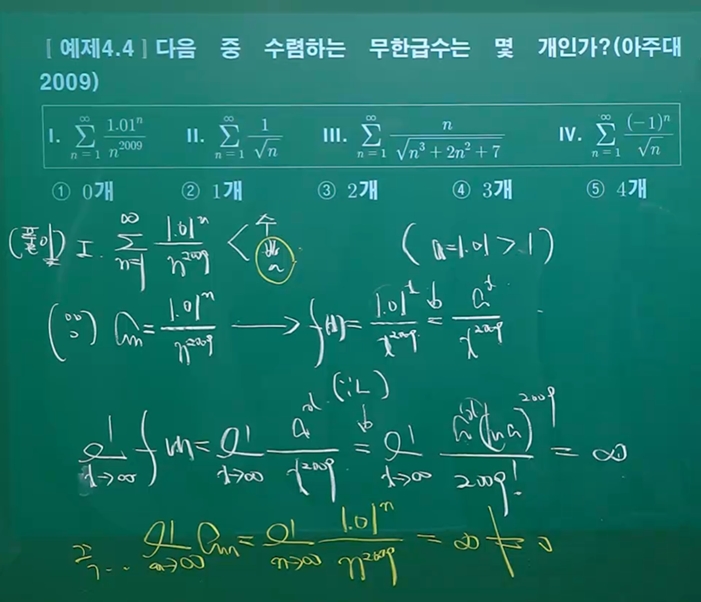 [ 예제4.4 ] 다음 중 수렴하는 무한급수는 몇 개인가?(아주대
2009)
I. \sum_{n=1}^{\infty} \frac{1.01^n}{n^{2009}} II. \sum_{n=1}^{\infty} \frac{1}{\sqrt{n}} III. \sum_{n=1}^{\infty} \frac{n}{\sqrt{n^3+2n^2+7}} IV. \sum_{n=1}^{\infty} \frac{(-1)^n}{\sqrt{n}}
① 0개 ② 1개 ③ 2개 ④ 3개 ⑤ 4개
(풀이) I. \sum_{n=1}^{\infty} \frac{1.01^n}{n^{2009}} < 수 (a=1.01>1)
(∵) a_n = \frac{1.01^n}{n^{2009}} → f(x) = \frac{1.01^x}{x^{2009}} = \frac{a^x}{x^{2009}}
(∵L)
\lim_{x→∞} f(x) = \lim_{x→∞} \frac{a^x}{x^{2009}} = \lim_{x→∞} \frac{a^x (\ln a)^{2009}}{2009!} = ∞
\lim_{n→∞} a_n = \lim_{n→∞} \frac{1.01^n}{n^{2009}} = ∞ ≠ 0